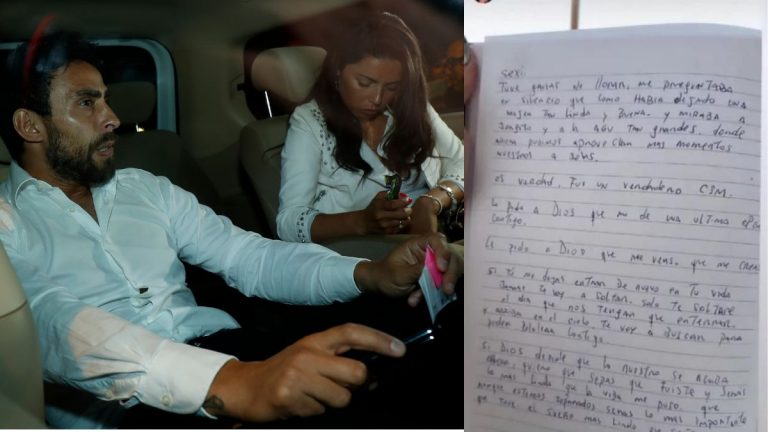 sexi:
Tuve ganas de llorar, me preguntaba
en silencio que como había dejado una
mujer tan linda y buena. y miraba a
y a la tan grandes, donde
podríamos aprovechar más momentos
nuestros a solas.
es verdad, fui un verdadero CSM.
le pido a Dios que me de una última
contigo.
Le pido a Dios que me veas, que me creas
si tú me dejas entrar de nuevo en tu vida
jamás te voy a soltar, solo te soltaré
el día que nos tengan que enterrar
y en el cielo te voy a buscar para
poder bailar contigo.
si Dios decide que lo nuestro se acaba
quiero que sepas que fuiste y serás
lo más lindo que la vida me puso. que
aunque estemos separados serás lo más importante
que tuve el sueño más lindo